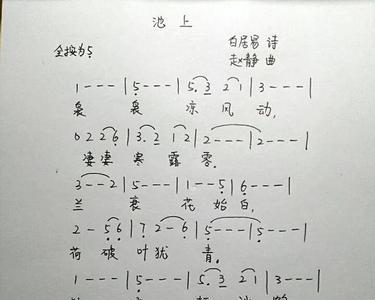 池上
白居易 诗
全按为5 赵静 曲
1 - - - | 5 - - - | 5 3 2 1 | 3 - - - |
袅 袅 凉 风 动,
0 2 2 6 | 3 2 1 2 | 2 - - - | 2 - - - |
凄凄 寒 露 零.
3 - - 2 | 5 - - - | 1 - - 5 | 6 - - - |
兰 衰 花 始 白,
2 - 5 6 | 7 2 - 6 | 5 - - - | 5 - - - |
荷 破 叶 犹 青.
1 - - - | 5 - - - | 5 3 2 1 | 3 - - - |